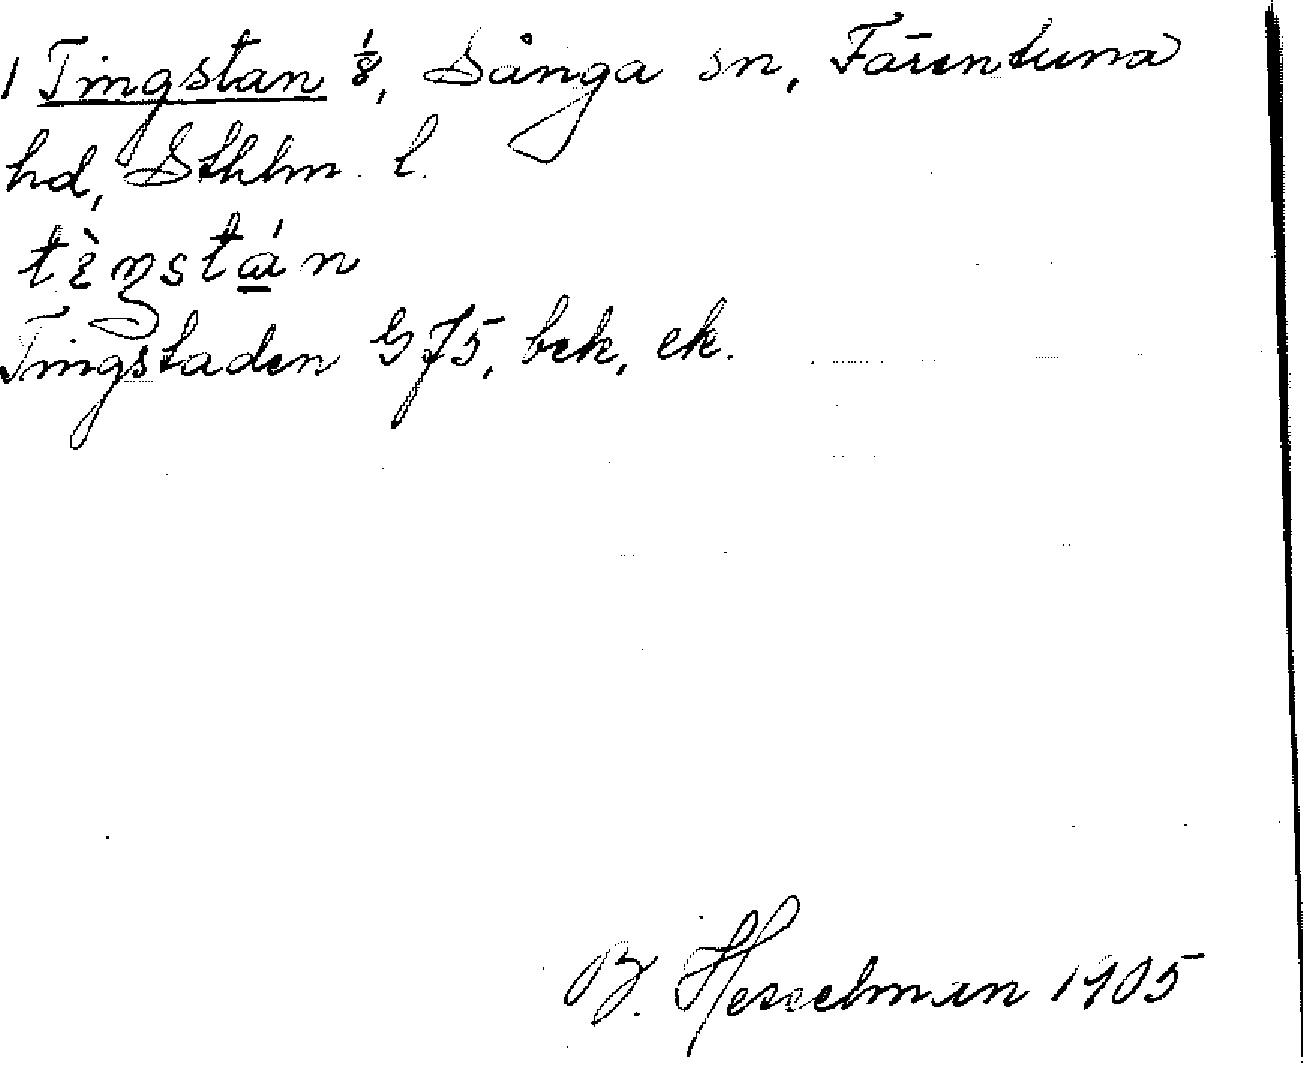 1 Tingstan 1/8, Sånga sn, Färentuna
hd, Sthlm. l.
tèŋstán
Tingstaden GJ5, bek, ek.
B. Hesselman 1905